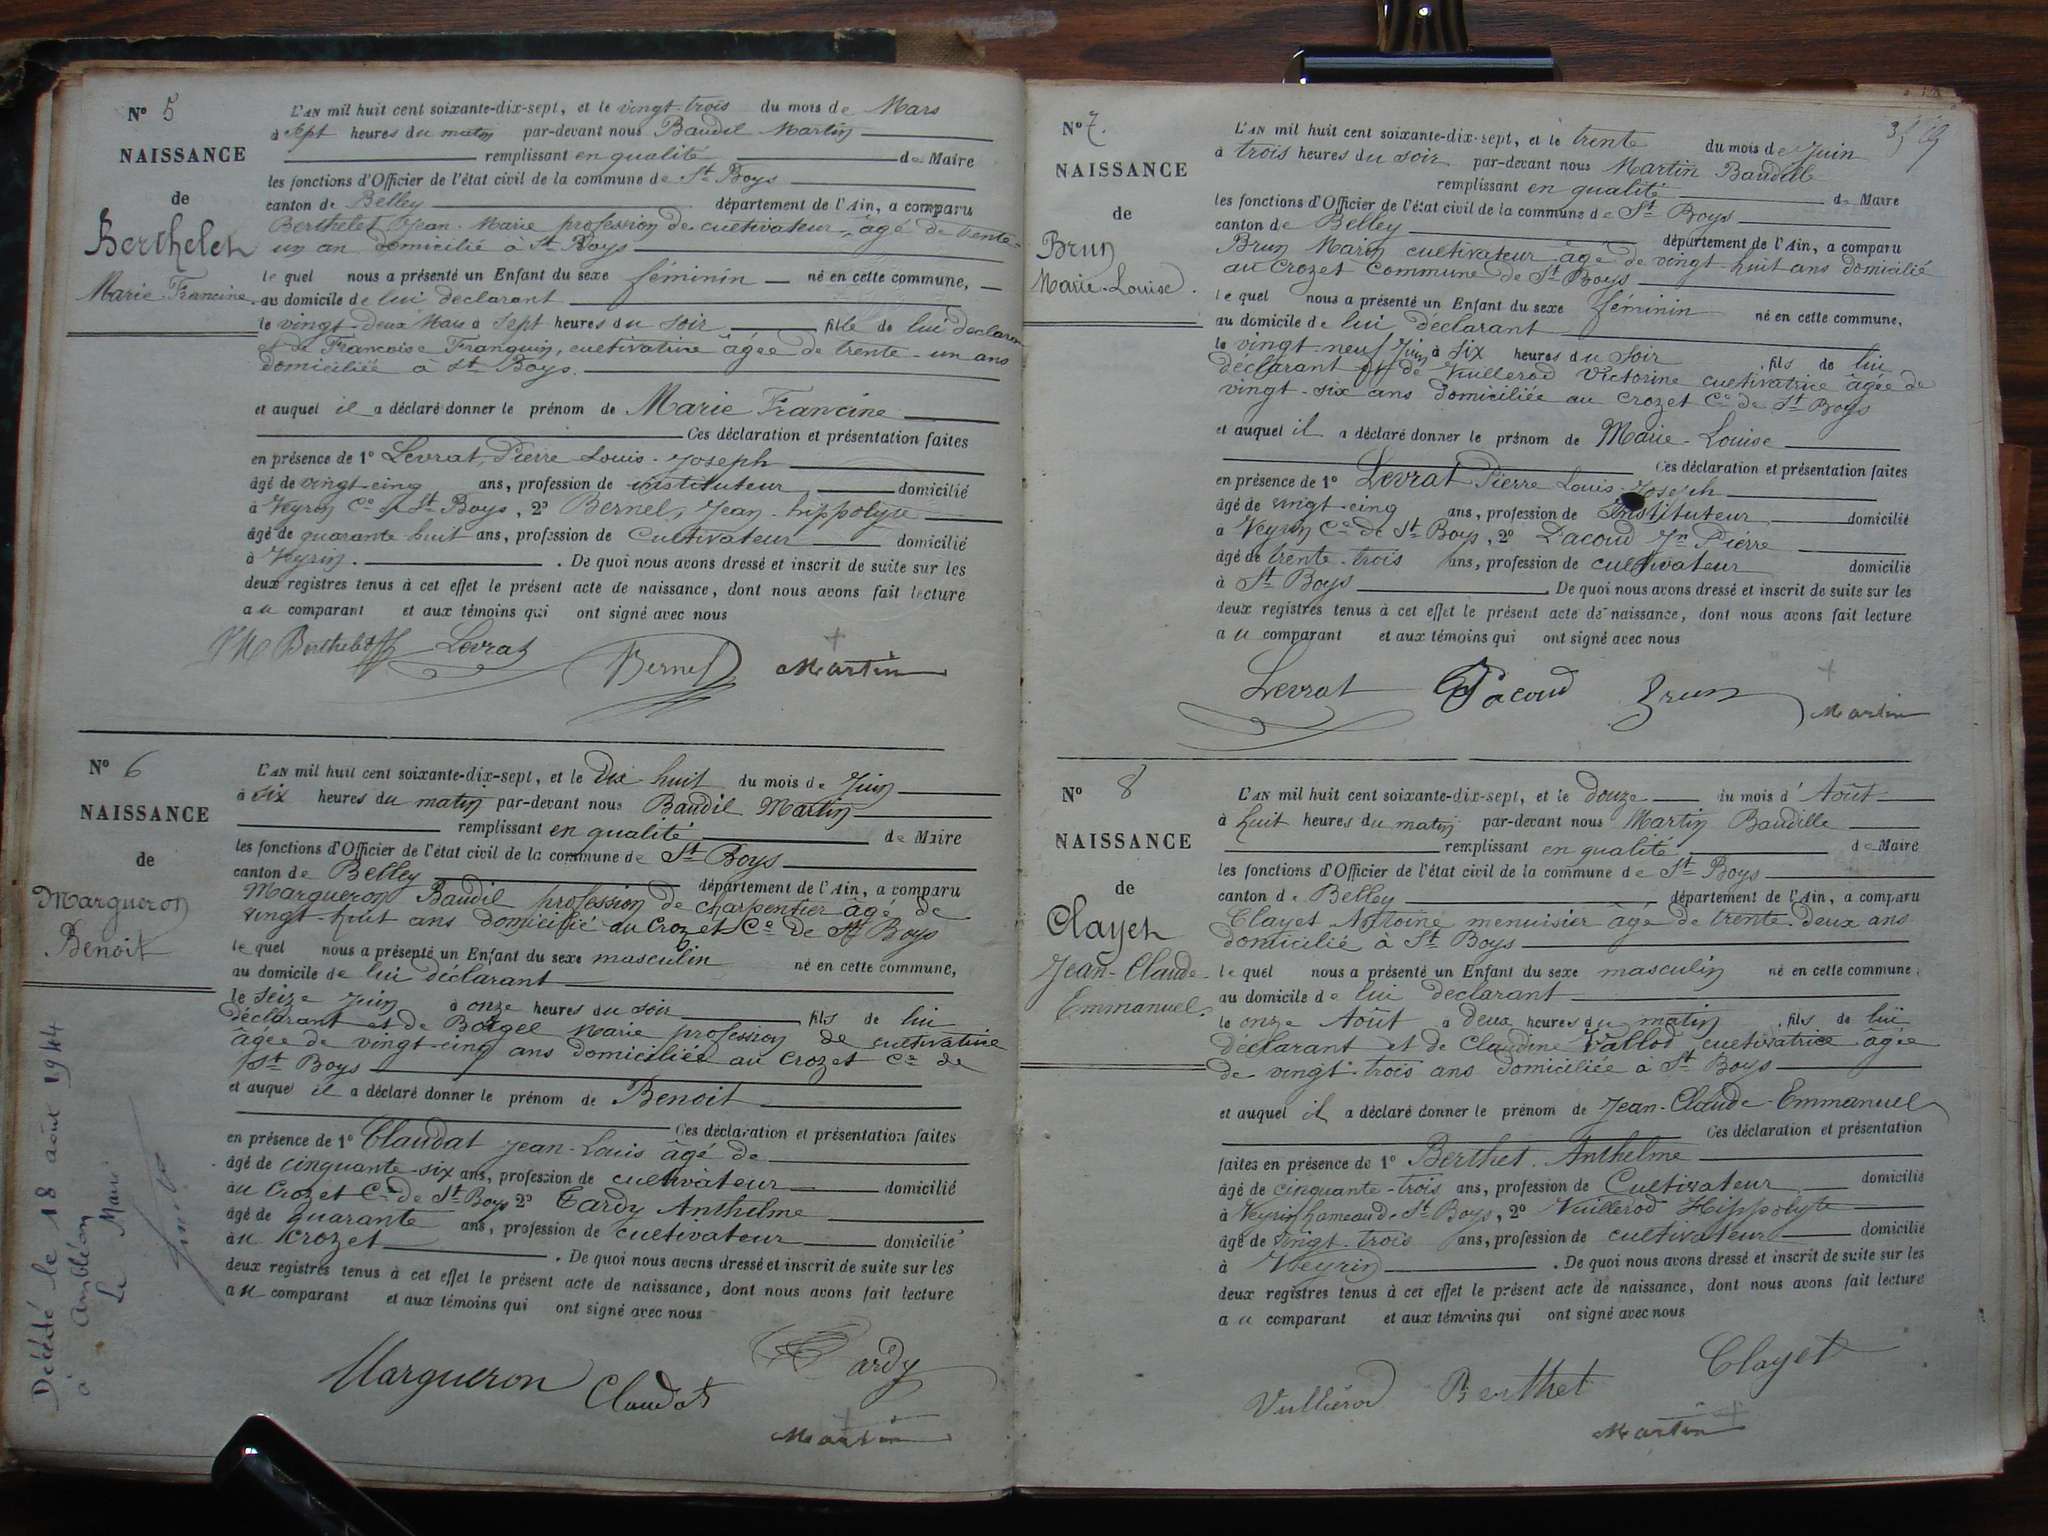 N° 5
NAISSANCE
de
Berthelet
Marie-Francine.
L'AN mil huit cent soixante-dix-sept, et le vingt-trois du mois de Mars
à sept heures du matin par-devant nous Baudil Martin
remplissant en qualité de Maire
les fonctions d'Officier de l'état civil de la commune de St Boys
canton de Belley département de l'Ain, a comparu
Berthelet Jean-Marie profession de cultivateur, âgé de trente-
un an domicilié à St Boys
le quel nous a présenté un Enfant du sexe féminin né en cette commune,
au domicile de lui déclarant
le vingt-deux Mars à sept heures du soir fille de lui déclarant
et de Francoise Franquin, cultivatrice âgée de trente-un ans
domiciliée à St Boys.
et auquel il a déclaré donner le prénom de Marie Francine
Ces déclaration et présentation faites
en présence de 1° Levrat, Pierre Louis-Joseph
âgé de vingt-cinq ans, profession de instituteur domicilié
à Veyrin Ce de St Boys, 2° Bernel, Jean-hippolyte
âgé de quarante-huit ans, profession de Cultivateur domicilié
à Veyrin. De quoi nous avons dressé et inscrit de suite sur les
deux registres tenus à cet effet le présent acte de naissance, dont nous avons fait lecture
au comparant et aux témoins qui ont signé avec nous
JM Berthelet Levrat Bernel Martin
N° 6
NAISSANCE
de
Margueron
Benoit
Décédé le 18 août 1944
à Ambléon
Le Maire
L'AN mil huit cent soixante-dix-sept, et le Dix-huit du mois de Juin
à six heures du matin par-devant nous Baudil Martin
remplissant en qualité de Maire
les fonctions d'Officier de l'état civil de la commune de St Boys
canton de Belley département de l'Ain, a comparu
Margueron Baudil profession de charpentier âgé de
vingt-huit ans domicilié au Crozet Ce de St Boys
le quel nous a présenté un Enfant du sexe masculin né en cette commune,
au domicile de lui déclarant
le seize Juin à onze heures du soir fils de lui
déclarant et de Borgel Marie profession de cultivatrice
âgée de vingt-cinq ans domiciliée au Crozet Ce de
St Boys
et auquel il a déclaré donner le prénom de Benoit
Ces déclaration et présentation faites
en présence de 1° Claudat Jean-Louis âgé de
âgé de cinquante-six ans, profession de cultivateur domicilié
au Crozet Ce de St Boys 2° Tardy Anthelme
âgé de quarante ans, profession de cultivateur domicilié
au Crozet. De quoi nous avons dressé et inscrit de suite sur les
deux registres tenus à cet effet le présent acte de naissance, dont nous avons fait lecture
au comparant et aux témoins qui ont signé avec nous
Margueron Claudat Tardy
Martin
N° 7.
NAISSANCE
de
Brun
Marie-Louise.
L'AN mil huit cent soixante-dix-sept, et le trente du mois de Juin
à trois heures du soir par-devant nous Martin Baudille
remplissant en qualité de Maire
les fonctions d'Officier de l'état civil de la commune de St Boys
canton de Belley département de l'Ain, a comparu
Brun Marin cultivateur âgé de vingt-huit ans domicilié
au Crozet Commune de St Boys
le quel nous a présenté un Enfant du sexe féminin né en cette commune,
au domicile de lui déclarant
le vingt-neuf Juin à six heures du soir fils de lui
déclarant et de Vuillerod Victorine cultivatrice âgée de
vingt-six ans domiciliée au Crozet Ce de St Boys
et auquel il a déclaré donner le prénom de Marie-Louise
Ces déclaration et présentation faites
en présence de 1° Levrat Pierre Louis-Joseph
âgé de vingt-cinq ans, profession de Instituteur domicilié
à Veyrin Ce de St Boys, 2° Pacoud Jn Pierre
âgé de trente-trois ans, profession de cultivateur domicilié
à St Boys De quoi nous avons dressé et inscrit de suite sur les
deux registres tenus à cet effet le présent acte de naissance, dont nous avons fait lecture
au comparant et aux témoins qui ont signé avec nous
Levrat Pacoud Brun Martin
N° 8
NAISSANCE
de
Clayet
Jean-Claude-
Emmanuel.
L'AN mil huit cent soixante-dix-sept, et le douze du mois d'Août
à huit heures du matin par-devant nous Martin Baudille
remplissant en qualité de Maire
les fonctions d'Officier de l'état civil de la commune de St Boys
canton de Belley département de l'Ain, a comparu
Clayet Antoine menuisier âgé de trente-deux ans
domicilié à St Boys
le quel nous a présenté un Enfant du sexe masculin né en cette commune,
au domicile de lui declarant
le onze Août à deux heures du matin fils de lui
déclarant et de Claudine Vallod cultivatrice âgée
de vingt-trois ans domiciliée à St Boys
et auquel il a déclaré donner le prénom de Jean-Claude-Emmanuel
Ces déclaration et présentation
faites en présence de 1° Berthet Anthelme
âgé de cinquante-trois ans, profession de Cultivateur domicilié
à Veyrin hameau de St Boys, 2° Vuillerod Hippolyte
âgé de vingt-trois ans, profession de cultivateur domicilié
à Veyrin. De quoi nous avons dressé et inscrit de suite sur les
deux registres tenus à cet effet le présent acte de naissance, dont nous avons fait lecture
au comparant et aux témoins qui ont signé avec nous
Vulliérod Berthet Clayet
Martin